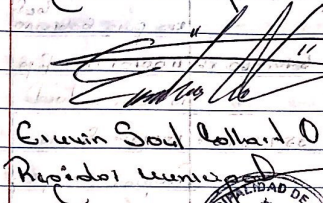 Erwin Saul Collard O
Regidor municipal
PALIDAD DE